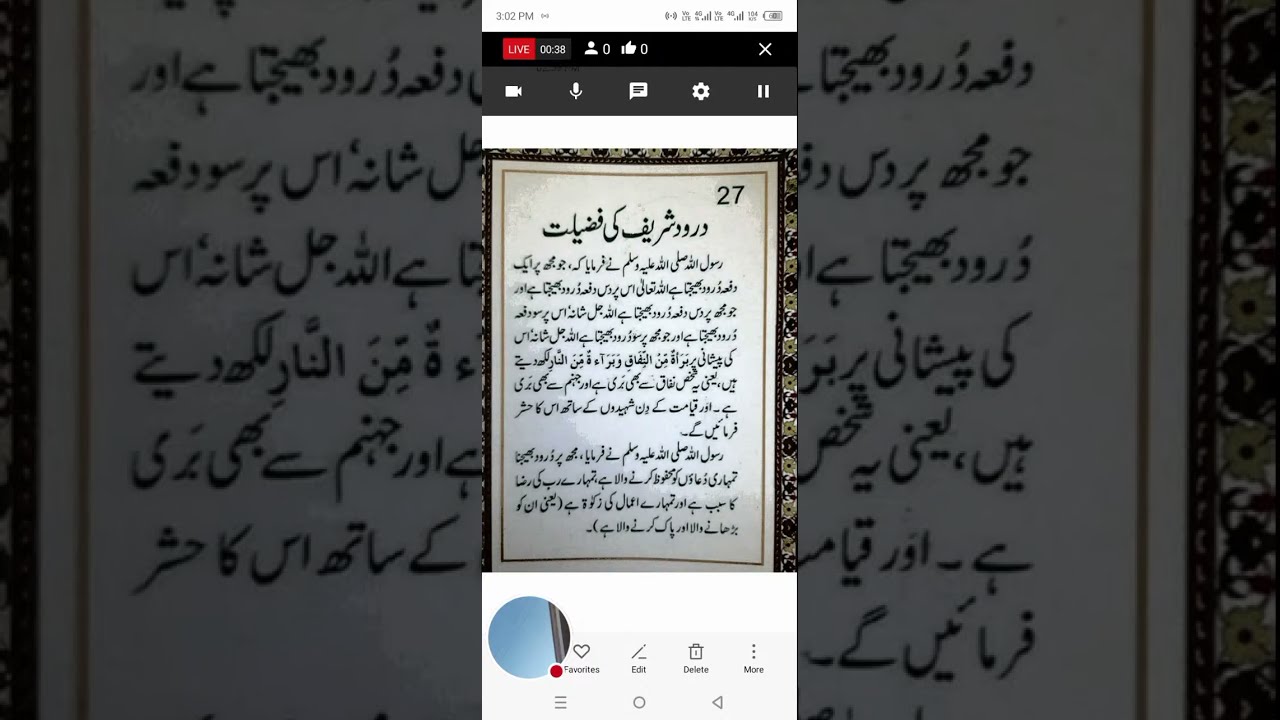 3:02 PM
LIVE 00:38 0 0
27
درود شریف کی فضیلت
رسول اللہ صلی اللہ علیہ وسلم نے فرمایا کہ، جو مجھ پر ایک
دفعہ دُرود بھیجتا ہے اللہ تعالیٰ اس پر دس دفعہ دُرود بھیجتا ہے اور
جو مجھ پر دس دفعہ دُرود بھیجتا ہے اللہ جل شانہٗ اس پر سو دفعہ
دُرود بھیجتا ہے اور جو مجھ پر سو دُرود بھیجتا ہے اللہ جل شانہٗ اس
کی پیشانی پر بَرَاۃٌ مِّنَ النِّفَاقِ وَبَرَآءۃٌ مِّنَ النَّارِ لکھ دیتے
ہیں، یعنی یہ شخص نفاق سے بھی بَری ہے اور جہنم سے بھی بَری
ہے۔ اور قیامت کے دِن شہیدوں کے ساتھ اس کا حشر
فرمائیں گے۔
رسول اللہ صلی اللہ علیہ وسلم نے فرمایا، مجھ پر دُرود بھیجنا
تمہاری دُعاؤں کو محفوظ کرنے والا ہے، تمہارے رب کی رضا
کا سبب ہے اور تمہارے اعمال کی زکوٰۃ ہے (یعنی ان کو
بڑھانے والا اور پاک کرنے والا ہے)۔
Favorites Edit Delete More